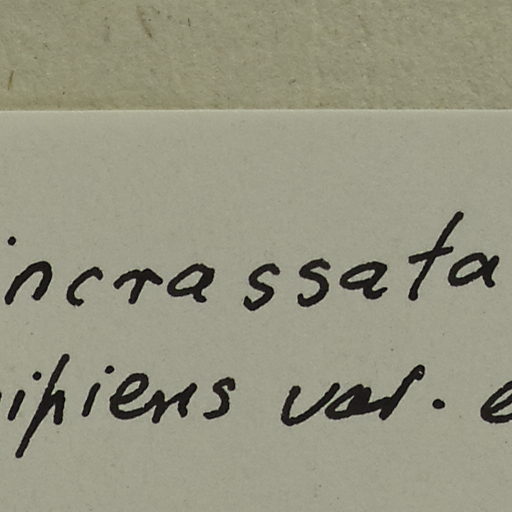 incrassata
ipiens var. e